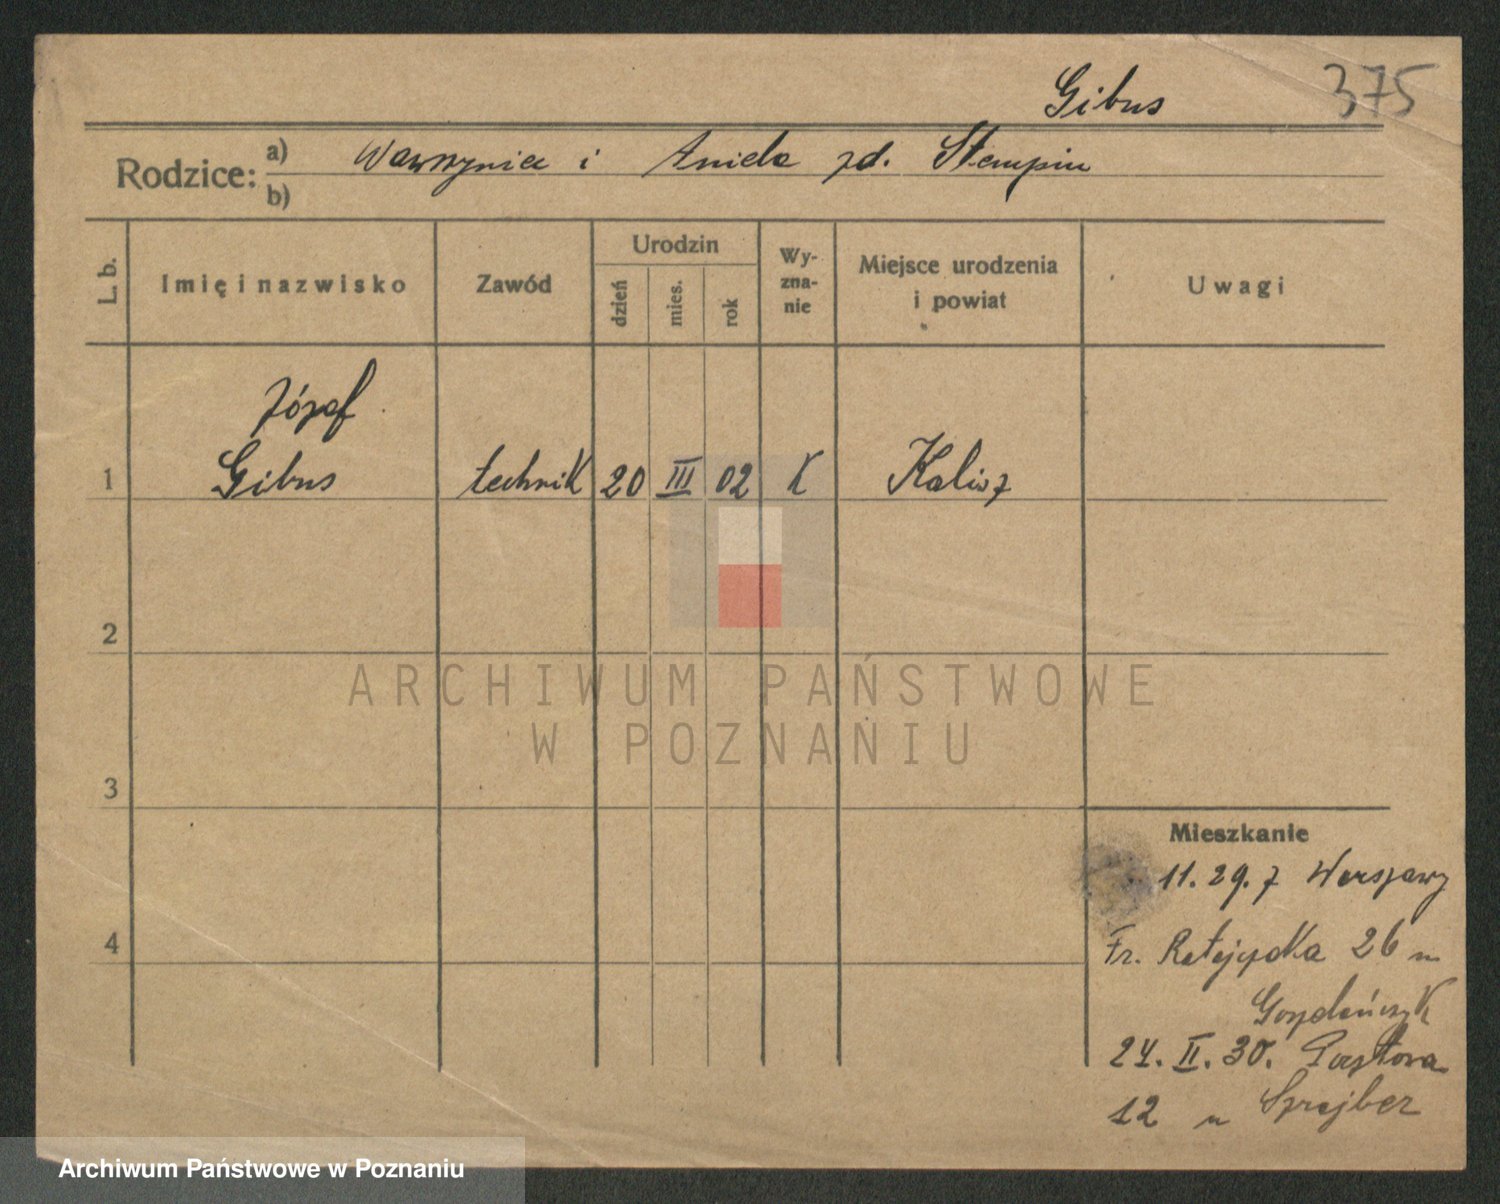 Gibus 375
Rodzice: a) Wawrzyniec i Aniela zd. Stempin
b)
L. b. Imię i nazwisko Zawód Urodzin dzień mies. rok Wyznanie Miejsce urodzenia i powiat Uwagi
Józef
1 Gibus technik 20 III 02 K Kalisz
2
ARCHIWUM PAŃSTWOWE
W POZNANIU
3
Mieszkanie
11. 29. z Warszawy
4 Fr. Ratajczaka 26 m
24. II. 30. Pocztowa
12 u Szrejber
Archiwum Państwowe w Poznaniu